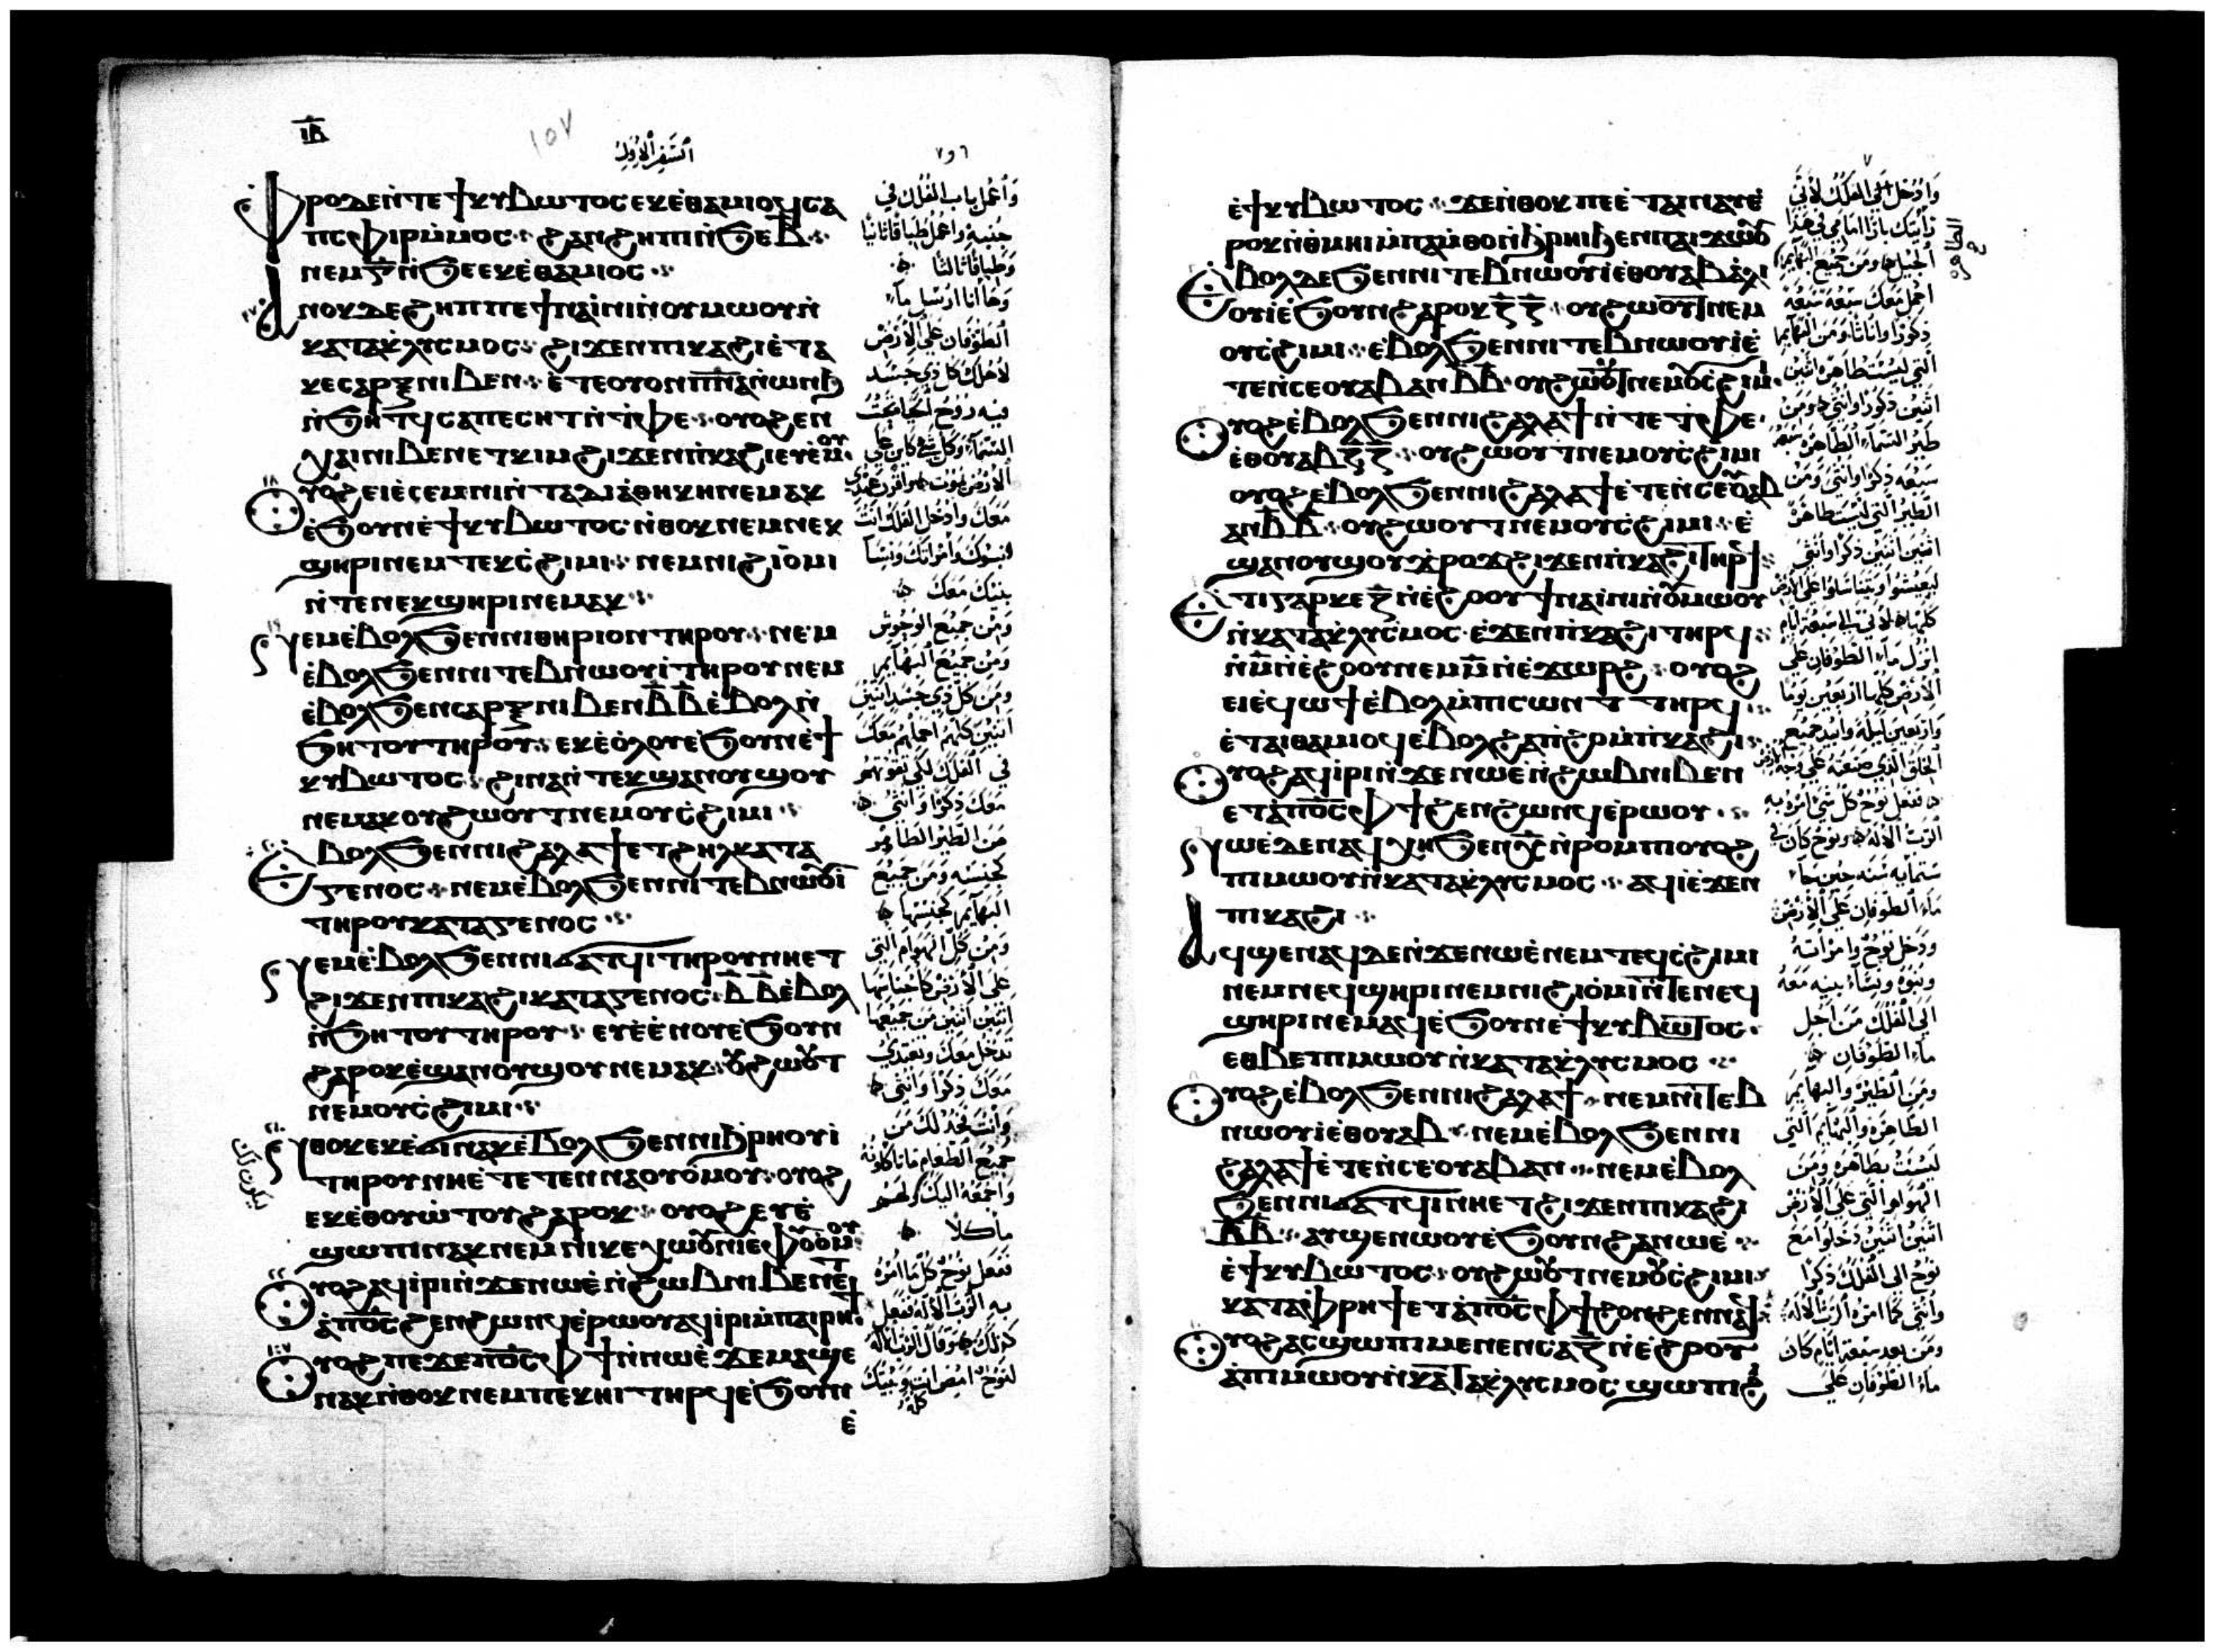 ⲓⲃ
السفر الاول
٦ و ٧
ⲫⲣⲟ ⲇⲉ ⲛ̀ⲧⲉ ϯⲕⲩⲃⲱⲧⲟⲥ ⲉⲕⲉ̀ⲑⲁⲙⲓⲟϥ ⲥⲁ
ⲡⲥⲫⲓⲣ ⲙ̀ⲙⲟⲥ ϩⲁⲛϩⲏⲡⲓ ⲛ̀ϧⲉ ⲃ̅
ⲛⲉⲙ ⲅ̅ ⲛ̀ϧⲉ ⲉⲕⲉ̀ⲑⲁⲙⲓⲟⲥ
ⲁⲛⲟⲕ ⲇⲉ ϩⲏⲡⲡⲉ ϯⲛⲁⲓ̀ⲛⲓ ⲛ̀ⲟⲩⲙⲱⲟⲩ ⲛ̀
ⲕⲁⲧⲁⲕ̀ⲗⲩⲥⲙⲟⲥ ϩⲓϫⲉⲛ ⲡⲓⲕⲁϩⲓ ⲉ̀ⲧⲁ
ⲕⲉ ⲥⲁⲣⲝ ⲛⲓⲃⲉⲛ ⲉ̀ⲧⲉ ⲟⲩⲟⲛ ⲡ̅ⲛ̅ⲁ̅ ⲛ̀ⲱⲛϧ
ⲛ̀ϧⲏⲧϥ ⲥⲁⲡⲉⲥⲏⲧ ⲛ̀ⲧ̀ⲫⲉ ⲟⲩⲟϩ ⲉⲛ
ⲭⲁⲓ ⲛⲓⲃⲉⲛ ⲉⲧⲕⲓⲙ ϩⲓϫⲉⲛ ⲡ̀ⲕⲁϩⲓ ⲉⲩⲉ̀ⲙⲟⲩ
ⲟⲩⲟϩ ⲉⲓⲉ̀ⲥⲉⲙⲛⲓ ⲛ̀ⲧⲁⲇⲓⲁ̀ⲑⲏⲕⲏ ⲛⲉⲙⲁⲕ
ⲉ̀ϧⲟⲩⲛ ⲉ̀ϯⲕⲩⲃⲱⲧⲟⲥ ⲛ̀ⲑⲟⲕ ⲛⲉⲙ ⲛⲉⲕ
ϣⲏⲣⲓ ⲛⲉⲙ ⲧⲉⲕⲥ̀ϩⲓⲙⲓ ⲛⲉⲙ ⲛⲓϩⲓⲟ̀ⲙⲓ
ⲛ̀ⲧⲉ ⲛⲉⲕϣⲏⲣⲓ ⲛⲉⲙⲁⲕ
ⲛⲉⲙ ⲉ̀ⲃⲟⲗϧⲉⲛ ⲛⲓⲑⲏⲣⲓⲟⲛ ⲧⲏⲣⲟⲩ ⲛⲉⲙ
ⲉ̀ⲃⲟⲗϧⲉⲛ ⲛⲓⲧⲉⲃⲛⲱⲟⲩⲓ̀ ⲧⲏⲣⲟⲩ ⲛⲉⲙ
ⲉ̀ⲃⲟⲗϧⲉⲛ ⲥⲁⲣⲝ ⲛⲓⲃⲉⲛ ⲃ̅ ⲃ̅ ⲉ̀ⲃⲟⲗ ⲛ̀
ϧⲏⲧⲟⲩ ⲧⲏⲣⲟⲩ ⲉⲕⲉ̀ⲟ̀ⲗⲟⲩ ⲉ̀ϧⲟⲩⲛ ⲉ̀ϯ
ⲕⲩⲃⲱⲧⲟⲥ ϩⲓⲛⲁ ⲛ̀ⲧⲉⲕϣⲁⲛⲟⲩϣⲟⲩ
ⲛⲉⲙⲁⲕ ⲟⲩϩⲱⲟⲩⲧ ⲛⲉⲙ ⲟⲩⲥ̀ϩⲓⲙⲓ
ⲉ̀ⲃⲟⲗϧⲉⲛ ⲛⲓϩⲁⲗⲁϯ ⲉⲧϩⲏⲗ ⲕⲁⲧⲁ
ⲅⲉⲛⲟⲥ ⲛⲉⲙ ⲉ̀ⲃⲟⲗϧⲉⲛ ⲛⲓⲧⲉⲃⲛⲱⲟⲩⲓ̀
ⲧⲏⲣⲟⲩ ⲕⲁⲧⲁ ⲅⲉⲛⲟⲥ
ⲛⲉⲙ ⲉ̀ⲃⲟⲗϧⲉⲛ ⲛⲓϭⲁⲧϥⲓ ⲧⲏⲣⲟⲩ ⲛⲏⲉⲧ
ϩⲓϫⲉⲛ ⲡⲓⲕⲁϩⲓ ⲕⲁⲧⲁ ⲅⲉⲛⲟⲥ ⲃ̅ ⲃ̅ ⲉ̀ⲃⲟⲗ
ⲛ̀ϧⲏⲧⲟⲩ ⲧⲏⲣⲟⲩ ⲉⲩⲉ̀ⲉ̀ⲛⲟⲩ ⲉ̀ϧⲟⲩⲛ
ϩⲁⲣⲟⲕ ⲉ̀ϣⲁⲛⲟⲩϣⲟⲩ ⲛⲉⲙⲁⲕ ⲟⲩϩⲱⲟⲩⲧ
ⲛⲉⲙ ⲟⲩⲥ̀ϩⲓⲙⲓ
ⲛ̀ⲑⲟⲕ ⲉⲕⲉ̀ϭⲓ ⲛⲁⲕ ⲉ̀ⲃⲟⲗϧⲉⲛ ⲛⲓϧ̀ⲣⲏⲟⲩⲓ̀
ⲧⲏⲣⲟⲩ ⲛⲏⲉ̀ⲧⲉⲧⲉⲛⲛⲁⲟⲩⲟ̀ⲙⲟⲩ ⲟⲩⲟϩ
ⲉⲕⲉ̀ⲑⲟⲩⲱ̀ⲧⲟⲩ ϩⲁⲣⲟⲕ ⲟⲩⲟϩ ⲉⲩⲉ̀
ϣⲱⲡⲓ ⲛⲁⲕ ⲛⲉⲙ ⲛⲓⲕⲉⲭⲱⲟⲩⲛⲓ ⲉ̀ⲫ̀ⲟⲩⲟⲙⲟⲩ
ⲟⲩⲟϩ ⲁϥⲓ̀ⲣⲓ ⲛ̀ϫⲉ ⲛⲱⲉ̀ ⲛ̀ϩⲱⲃ ⲛⲓⲃⲉⲛ ⲉⲧ
ⲁ̀ ⲡⲟ̅ⲥ̅ ϩⲉⲛϩⲱⲛϥ ⲉ̀ⲣⲱⲟⲩ ⲁϥⲓ̀ⲣⲓ ⲙ̀ⲡⲁⲓⲣⲏϯ
ⲟⲩⲟϩ ⲡⲉϫⲉ ⲡⲟ̅ⲥ̅ ⲫϯ ⲛ̀ⲛⲱⲉ̀ ϫⲉ ⲙⲁϣⲉ
ⲛⲁⲕ ⲛ̀ⲑⲟⲕ ⲛⲉⲙ ⲡⲉⲕⲏⲓ ⲧⲏⲣϥ ⲉ̀ϧⲟⲩⲛ
ⲉ̀
واعمل باب الفلك في
جنبه واعمل طباقا ثانيا
وطباقا ثالثا
وها انا ارسل ماء
الطوفان على الارض
لاهلك كل ذي جسد
فيه روح الحياة تحت
السماء وكل شي كاين على
معك وادخل الفلك انت
وبنوك وامراتك ونسا
بنيك معك
ومن جميع الوحوش
ومن جميع البهايم
ومن كل ذي جسد اثنين
اثنين كلهم احملهم معك
في الفلك لكي تقوتهم
معك ذكرا وانثى
من الطير الطاير
كجنسه ومن جميع
البهايم كجنسها
ومن كل الهوام التي
على الارض كاجناسها
اثنين اثنين من جميعها
تدخل معك وتغتدي
معك ذكرا وانثى
وانت فخذ لك من
جميع الطعام ما تاكلونه
واجمعه اليك
ماكلا
ففعل نوح كل ما امره
به الرب الاله ففعل
كذلك وقال الرب الاله
لنوح امض انت وبيتك
كله
٧
ⲉ̀ϯⲕⲩⲃⲱⲧⲟⲥ ϫⲉ ⲛ̀ⲑⲟⲕ ⲡⲉ ⲉ̀ⲧⲁⲓⲛⲁⲩ ⲉ̀
ⲣⲟⲕ ⲛ̀ⲑ̀ⲙⲏⲓ ⲙ̀ⲡⲁⲙ̀ⲑⲟ ⲛ̀ϧ̀ⲣⲏⲓ ϧⲉⲛ ⲡⲁⲓϫⲱⲟⲩ
ⲉ̀ⲃⲟⲗ ⲇⲉ ϧⲉⲛ ⲛⲓⲧⲉⲃⲛⲱⲟⲩⲓ̀ ⲉⲑⲟⲩⲁⲃ ⲁ̀ⲗⲓ
ⲟⲩⲓ̀ ⲉ̀ϧⲟⲩⲛ ϩⲁⲣⲟⲕ ⲍ̅ ⲍ̅ ⲟⲩϩⲱⲟⲩⲧ ⲛⲉⲙ
ⲟⲩⲥ̀ϩⲓⲙⲓ ⲉ̀ⲃⲟⲗϧⲉⲛ ⲛⲓⲧⲉⲃⲛⲱⲟⲩⲓ̀ ⲉ̀
ⲧⲉ ⲛ̀ⲥⲉⲟⲩⲁⲃ ⲁⲛ ⲃ̅ ⲃ̅ ⲟⲩϩⲱⲟⲩⲧ ⲛⲉⲙ ⲟⲩⲥ̀ϩⲓⲙⲓ
ⲟⲩⲟϩ ⲉ̀ⲃⲟⲗϧⲉⲛ ⲛⲓϩⲁⲗⲁϯ ⲛ̀ⲧⲉ ⲧ̀ⲫⲉ
ⲉⲑⲟⲩⲁⲃ ⲍ̅ ⲍ̅ ⲟⲩϩⲱⲟⲩⲧ ⲛⲉⲙ ⲟⲩⲥ̀ϩⲓⲙⲓ
ⲟⲩⲟϩ ⲉ̀ⲃⲟⲗϧⲉⲛ ⲛⲓϩⲁⲗⲁϯ ⲉ̀ⲧⲉ ⲛ̀ⲥⲉⲟⲩⲁⲃ
ⲁⲛ ⲃ̅ ⲃ̅ ⲟⲩϩⲱⲟⲩⲧ ⲛⲉⲙ ⲟⲩⲥ̀ϩⲓⲙⲓ ⲉ̀
ϣⲁⲛⲟⲩϣⲟⲩ ϫ̀ⲣⲟϫ ϩⲓϫⲉⲛ ⲡ̀ⲕⲁϩⲓ ⲧⲏⲣϥ
ⲉ̀ⲧⲓ ⲅⲁⲣ ⲕⲉ ⲍ̅ ⲛ̀ⲉ̀ϩⲟⲟⲩ ϯⲛⲁⲓ̀ⲛⲓ ⲛ̀ⲟⲩⲙⲱⲟⲩ
ⲛ̀ⲕⲁⲧⲁⲕ̀ⲗⲩⲥⲙⲟⲥ ⲉ̀ϫⲉⲛ ⲡ̀ⲕⲁϩⲓ ⲧⲏⲣϥ
ⲛ̀ⲙ̅ ⲛ̀ⲉ̀ϩⲟⲟⲩ ⲛⲉⲙ ⲙ̅ ⲛ̀ⲉ̀ϫⲱⲣϩ ⲟⲩⲟϩ
ⲉⲓⲉ̀ϥⲱϯ ⲉ̀ⲃⲟⲗ ⲙ̀ⲡⲓⲥⲱⲛⲧ ⲧⲏⲣϥ
ⲉ̀ⲧⲁⲓⲑⲁⲙⲓⲟϥ ⲉ̀ⲃⲟⲗϩⲁ ⲡ̀ϩⲟ ⲙ̀ⲡ̀ⲕⲁϩⲓ
ⲟⲩⲟϩ ⲁϥⲓ̀ⲣⲓ ⲛ̀ϫⲉ ⲛⲱⲉ̀ ⲛ̀ϩⲱⲃ ⲛⲓⲃⲉⲛ
ⲉⲧⲁ̀ ⲡⲟ̅ⲥ̅ ⲫϯ ϩⲉⲛϩⲱⲛϥ ⲉ̀ⲣⲱⲟⲩ
ⲛⲱⲉ̀ ⲇⲉ ⲛⲁϥⲭⲏ ϧⲉⲛ ⲭ̅ ⲛ̀ⲣⲟⲙⲡⲓ ⲟⲩⲟϩ
ⲡⲓⲙⲱⲟⲩ ⲛ̀ⲕⲁⲧⲁⲕ̀ⲗⲩⲥⲙⲟⲥ ⲁϥⲓ̀ ⲉ̀ϫⲉⲛ
ⲡⲓⲕⲁϩⲓ
ⲁϥϣⲉⲛⲁϥ ⲇⲉ ⲛ̀ϫⲉ ⲛⲱⲉ̀ ⲛⲉⲙ ⲧⲉϥⲥ̀ϩⲓⲙⲓ
ⲛⲉⲙ ⲛⲉϥϣⲏⲣⲓ ⲛⲉⲙ ⲛⲓϩⲓⲟ̀ⲙⲓ ⲛ̀ⲧⲉ ⲛⲉϥ
ϣⲏⲣⲓ ⲛⲉⲙⲁϥ ⲉ̀ϧⲟⲩⲛ ⲉ̀ϯⲕⲩⲃⲱⲧⲟⲥ
ⲉⲑⲃⲉ ⲡⲓⲙⲱⲟⲩ ⲛ̀ⲕⲁⲧⲁⲕ̀ⲗⲩⲥⲙⲟⲥ
ⲟⲩⲟϩ ⲉ̀ⲃⲟⲗϧⲉⲛ ⲛⲓϩⲁⲗⲁϯ ⲛⲉⲙ ⲛⲓⲧⲉⲃ
ⲛⲱⲟⲩⲓ̀ ⲉⲑⲟⲩⲁⲃ ⲛⲉⲙ ⲉ̀ⲃⲟⲗϧⲉⲛ ⲛⲓ
ϩⲁⲗⲁϯ ⲉ̀ⲧⲉ ⲛ̀ⲥⲉⲟⲩⲁⲃ ⲁⲛ ⲛⲉⲙ ⲉ̀ⲃⲟⲗ
ϧⲉⲛ ⲛⲓϭⲁⲧϥⲓ ⲛⲏⲉⲧϩⲓϫⲉⲛ ⲡⲓⲕⲁϩⲓ
ⲃ̅ ⲃ̅ ⲁⲩϣⲉⲛⲱⲟⲩ ⲉ̀ϧⲟⲩⲛ ϩⲁ ⲛⲱⲉ̀
ⲉ̀ϯⲕⲩⲃⲱⲧⲟⲥ ⲟⲩϩⲱⲟⲩⲧ ⲛⲉⲙ ⲟⲩⲥ̀ϩⲓⲙⲓ
ⲕⲁⲧⲁ ⲫ̀ⲣⲏϯ ⲉⲧⲁ̀ ⲡⲟ̅ⲥ̅ ⲫϯ ϩⲟⲛϩⲉⲛ ⲛⲁϥ
ⲟⲩⲟϩ ⲁⲥϣⲱⲡⲓ ⲙⲉⲛⲉⲛⲥⲁ ⲍ̅ ⲛ̀ⲉ̀ϩⲟⲟⲩ
ⲁ̀ ⲡⲓⲙⲱⲟⲩ ⲛ̀ⲕⲁⲧⲁⲕ̀ⲗⲩⲥⲙⲟⲥ ϣⲱⲡⲓ ϩⲓ
وادخل الى الفلك لاني
رايتك بارا امامي في هذا
الجيل ومن جميع البهايم
احمل معك سبعه سبعه
ذكورا واناثا ومن البهايم
التي ليست طاهره اثنين
اثنين ذكورا وانثى ومن
طير السماء الطاهره سبعه
سبعه ذكرا وانثى ومن
الطير التي ليست طاهره
اثنين اثنين ذكرا وانثى
كلها لاني الى سبعة ايام
انزل ماء الطوفان على
الارض كلها اربعين يوما
واربعين ليله وابيد جميع
الخلق الذي صنعته على وجه الارض
ففعل نوح كل شي امره به
الرب الاله ونوح كان في
ستمايه سنه حين جاء
ماء الطوفان على الارض
ودخل نوح وامراته
وبنوه ونساء بنيه معه
الى الفلك من اجل
ماء الطوفان
ومن الطير والبهايم
الطاهره والبهايم التي
ليست بطاهره ومن
الهوام التي على الارض
اثنين اثنين دخلوا مع
نوح الى الفلك ذكرا
وانثى كما امره الرب الاله
ومن بعد سبعة ايام كان
ماء الطوفان على